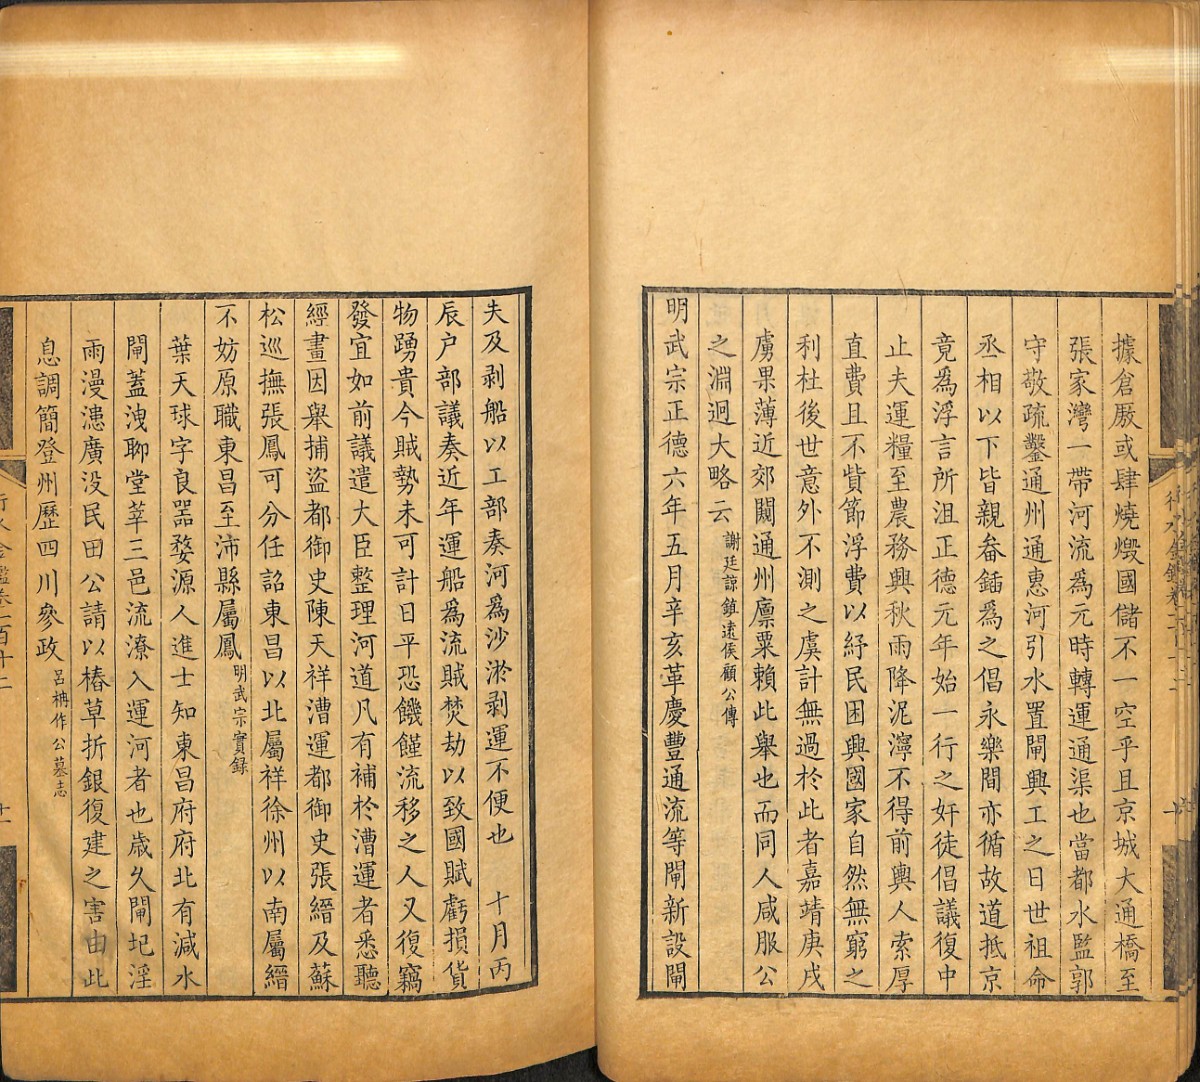 據倉厫或肆燒燬國儲不一空乎且京城大通橋至
張家灣一帶河流爲元時轉運通渠也當都水監郭
守敬疏鑿通州通惠河引水置閘興工之日世祖命
丞相以下皆親畚鍤爲之倡永樂間亦循故道抵京
竟爲浮言所沮正德元年始一行之奸徒倡議復中
止夫運糧至農務興秋雨降泥濘不得前輿人索厚
直費且不貲節浮費以紓民困興國家自然無窮之
利杜後世意外不測之虞計無過於此者嘉靖庚戌
虜果薄近郊闕通州廪粟賴此舉也而同人咸服公
之淵迥大略云謝廷諒鎮遠侯顧公傳
明武宗正德六年五月辛亥革慶豐通流等閘新設閘
夫及剥船以工部奏河爲沙淤剥運不便也 十月丙
辰户部議奏近年運船爲流賊焚劫以致國賦虧損貨
物踴貴今賊勢未可計日平恐饑饉流移之人又復竊
發宜如前議遣大臣整理河道凡有補於漕運者悉聽
經畫因舉捕盜都御史陳天祥漕運都御史張縉及蘇
松巡撫張鳳可分任詔東昌以北屬祥徐州以南屬縉
不妨原職東昌至沛縣屬鳳明武宗實録
葉天球字良器婺源人進士知東昌府府北有減水
閘蓋洩聊堂莘三邑流潦入運河者也歲久閘圮淫
雨漫漶廣没民田公請以樁草折銀復建之害由此
息調簡登州歷四川參政呂柟作公墓志
行水金鑑卷一百十二
十一